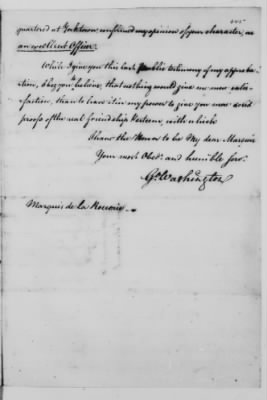 445
quartered at York town confirmed my opinion of your character, as
an excellent Officer.
While I give you this last Public testimony of my approba-
tion, I beg you to believe, that nothing would give me more satis-
faction, than to have it in my power to give you more avowed
proofs of the real friendship & esteem, with which
I have the Honor to be My dear Marquis
Your most Obedt. and humble Serv.
Go. Washington
Marquis de la Rouerie